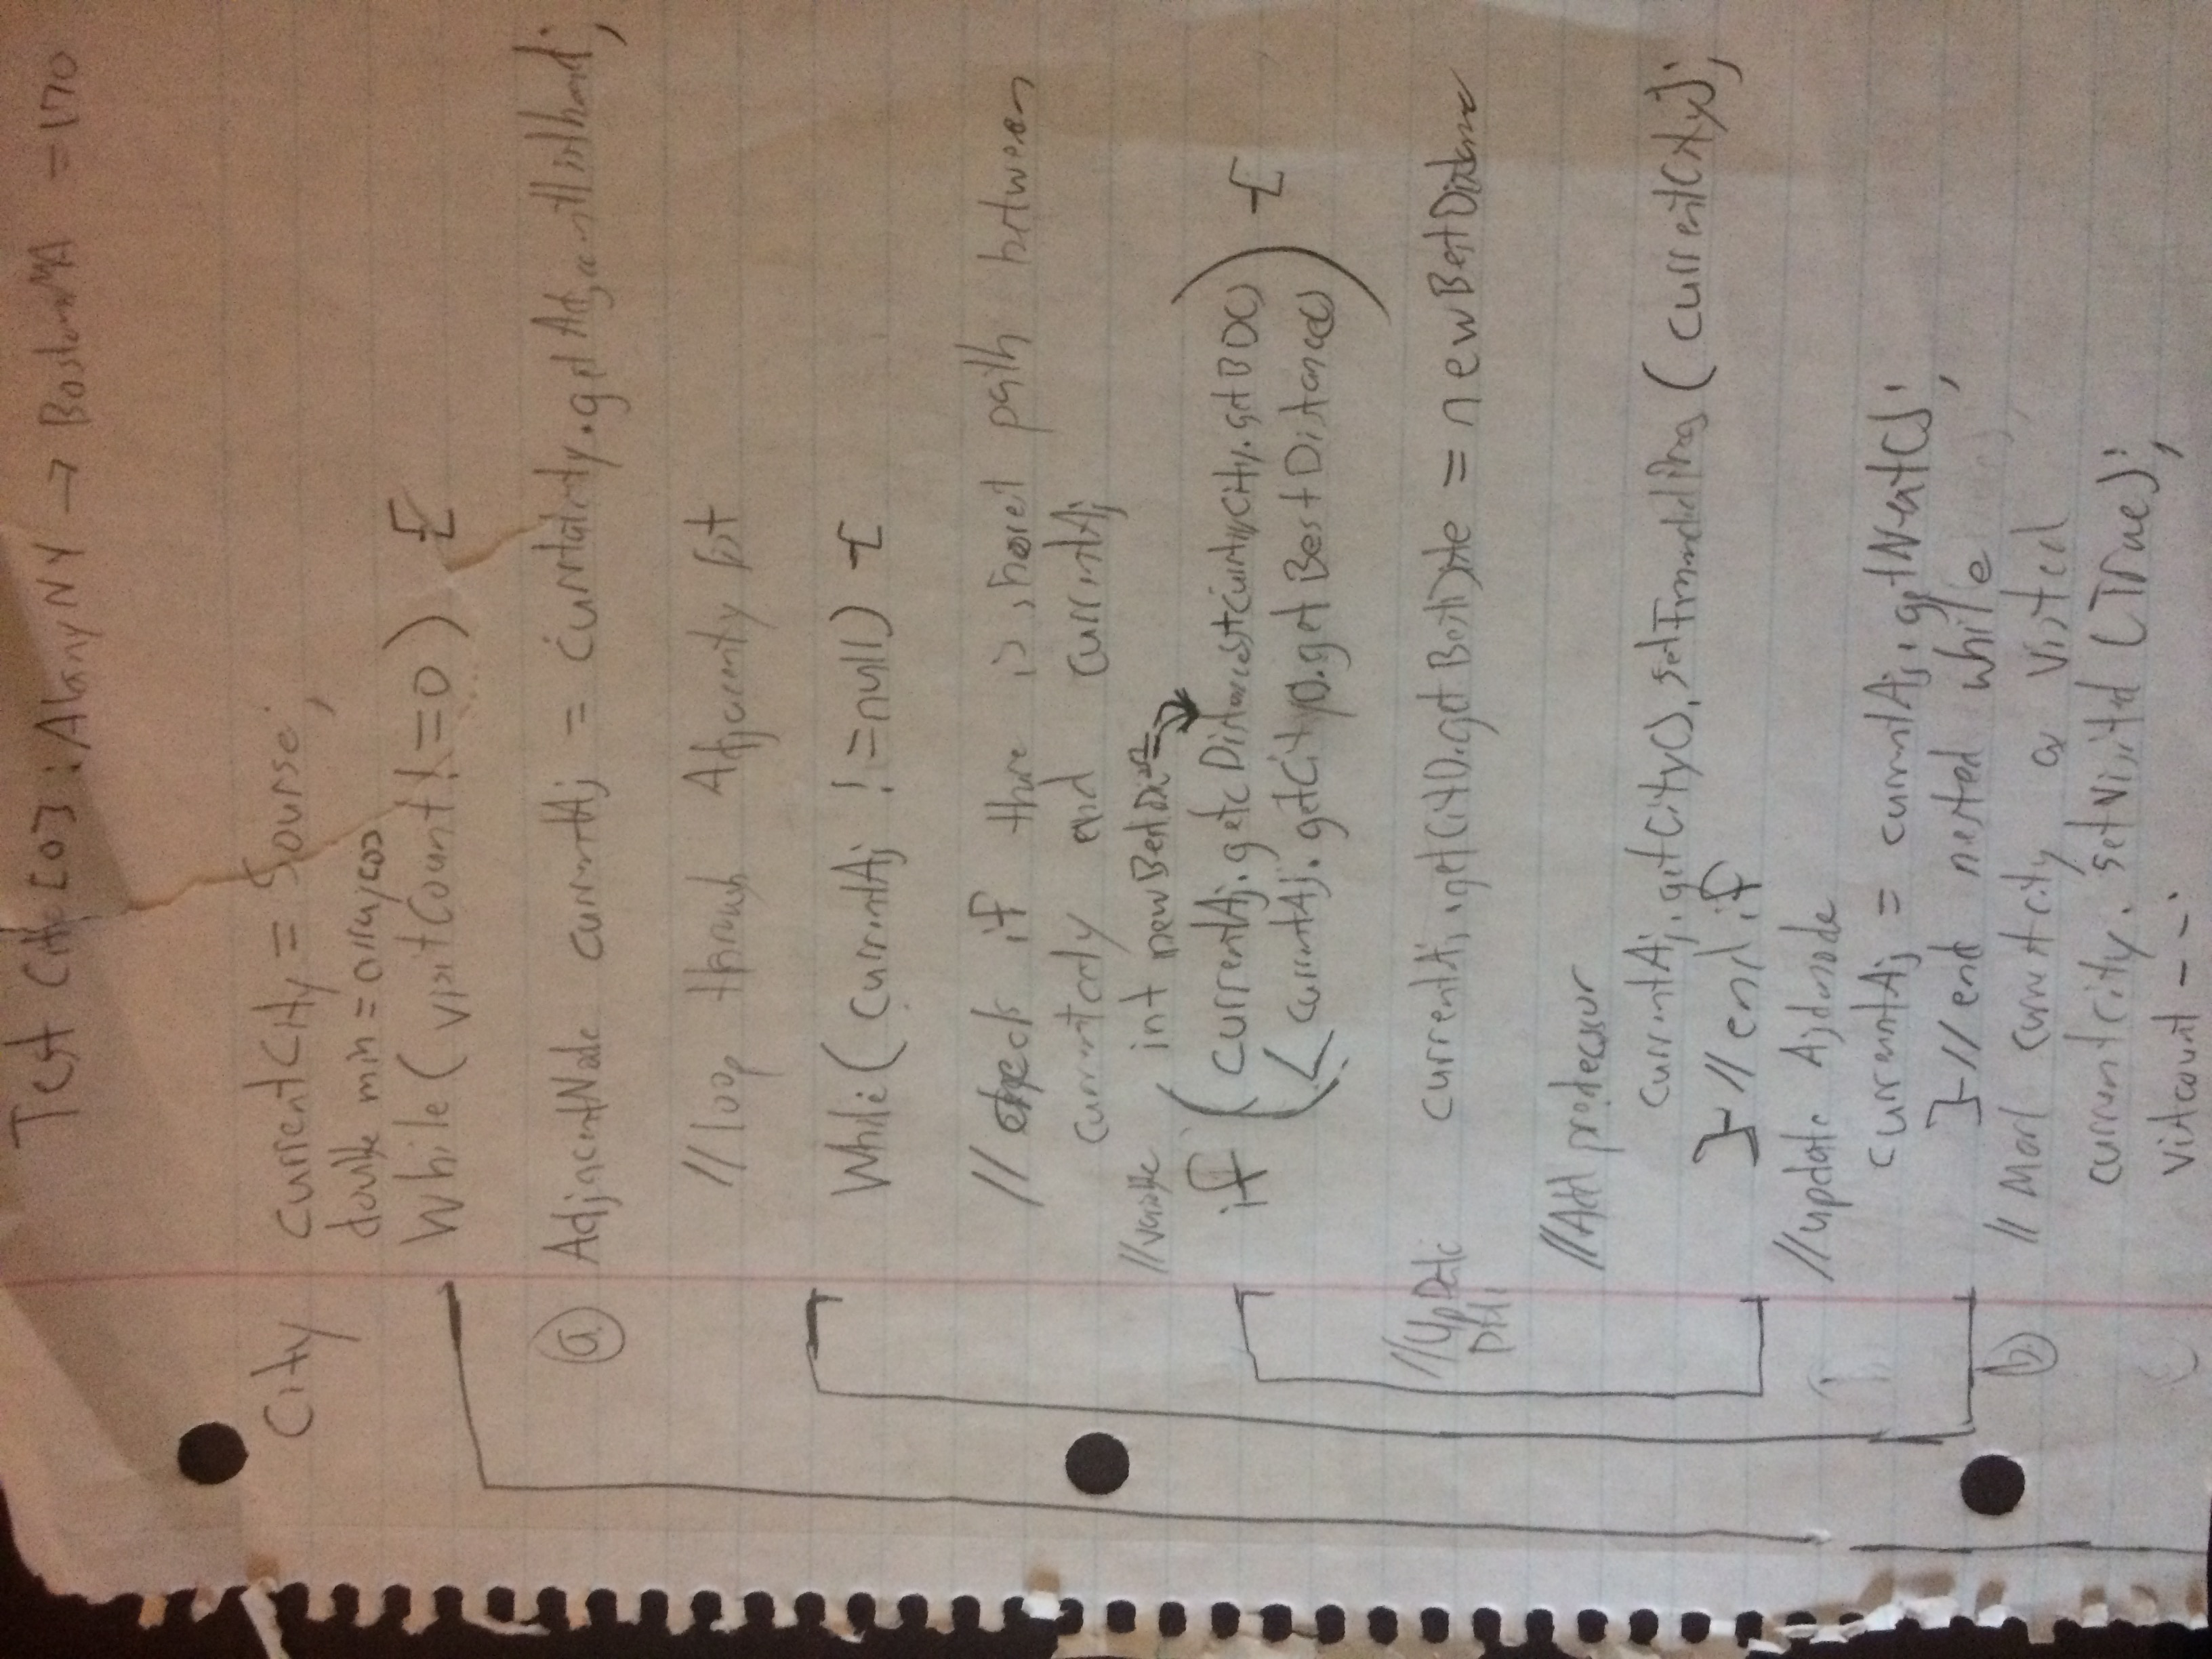 Test City [0] : Alany NY → Boston MA = 170
City currentCity = Sourse;
double min = array[0]
While ( visitCount != 0 ) {
(a) AdjacentNode currentAj = currentcity.getAdjacentlisthead;
// loop through Adjacenty list
While ( currentAj != null) {
// check if there is shorest path between
currentcity and currentAj
// variable int newBestDis =
if ( currentAj.getcDistances+currentCity.getBD()
< currentAj.getCity().getBestDistance() ) {
// UpDate currentAj.getCity().getBestDiste = newBestDistance
// Add prodecssur
currentAj.getCity(). (currentCity);
} // end if
// update Ajdnode
currentAj = currentAj.getNext();
} // end nested while
(b) // Mark currentcity as Visted
currentcity.setVisited (True);
Vistcount - - ;